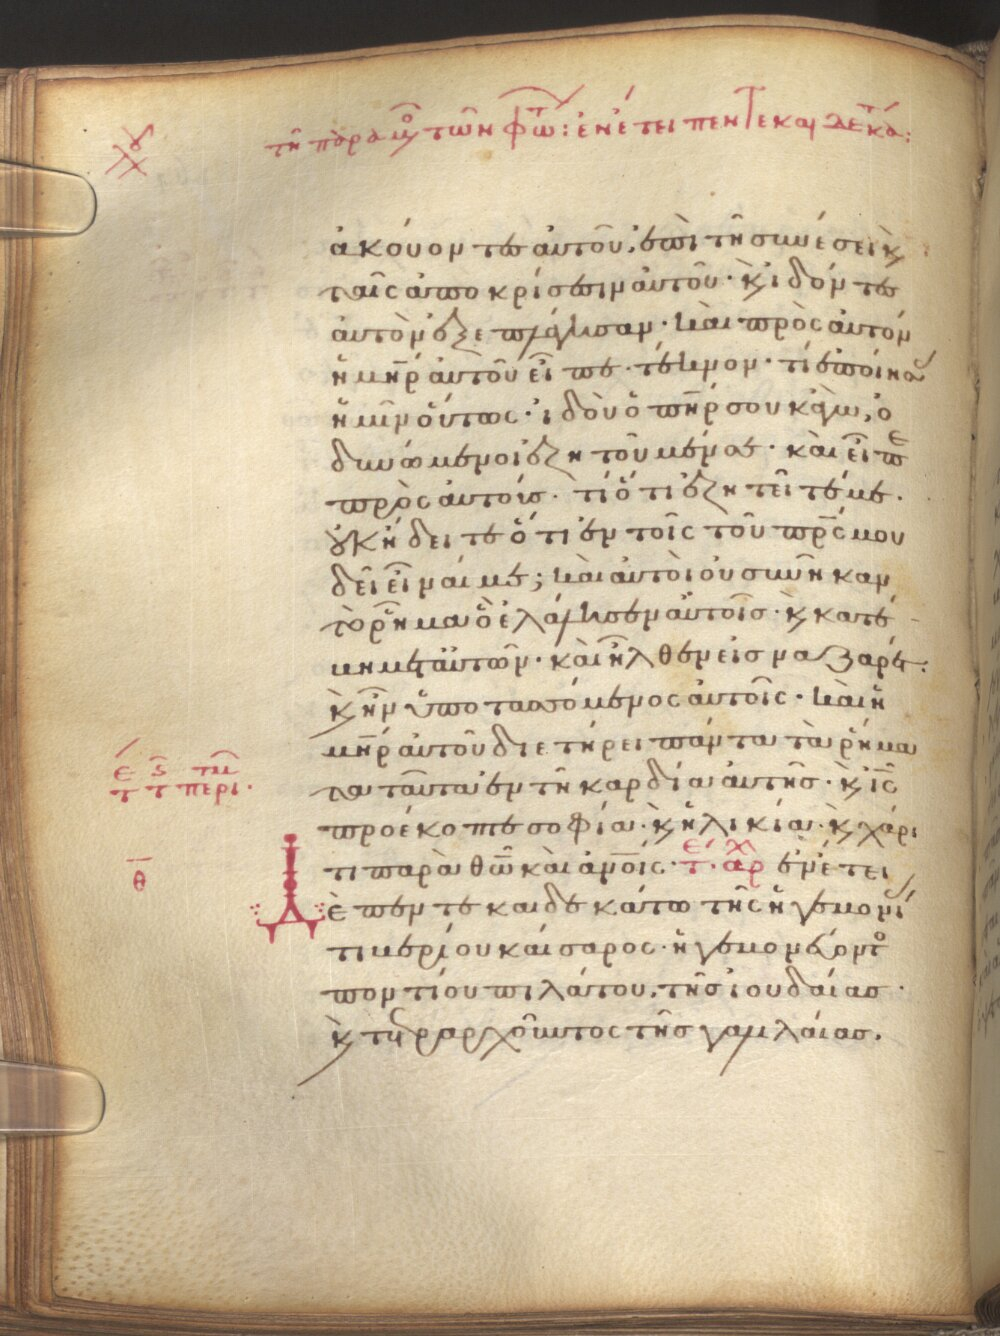 τῆ παραμο τῶν φωτ: ἐν ἔτει πεντεκαιδεκα:
ἀκούοντες αὐτοῦ, ἐπὶ τῆ συνέσει κ
ταῖς ἀποκρίσεσιν αὐτοῦ· κ ἰδόντες
αὐτὸν ἐξεπλάγησαν· καὶ πρὸς αὐτὸν
ἡ μηρ αὐτοῦ εἶπε· τέκνον· τί ἐποίησας
ἡμῖν οὕτως· ἰδοὺ ὁ πηρ σου κἀγὼ, ὀ
δυνώμενοι ἐζητοῦμέν σε· καὶ εἶπε
πρὸς αὐτούς· τί ὅτι ἐζητεῖτέ με·
οὐκ ἤδειτε ὅτι ἐν τοῖς τοῦ πρς μου
δεῖ εἶναί με; καὶ αὐτοὶ οὐ συνῆκαν
τὸ ῥῆμα ὃ ἐλάλησεν αὐτοῖς· κ κατέ
βη μετ αὐτῶν· καὶ ἦλθεν εἰς ναζαρέτ:
κ ἦν ὑποτασσόμενος αὐτοῖς· καὶ ἡ
μηρ αὐτοῦ διετήρει πάντα τὰ ῥήμα
τα ταῦτα ἐν τῆ καρδία αὐτῆς· κ ις
προέκοπτε σοφία· κ ἡλικία· κ χάρι
τι παρὰ θω καὶ ανοις· τ· αρχ ἐν ἔτει
δὲ πεντεκαιδεκάτω τῆς ἡγεμονί
τιβερίου καίσαρος· ἡγεμονεύοντο
ποντίου πιλάτου, τῆς ἰουδαίας·
κ τετραρχοῦντος τῆς γαλιλαίας.
θ